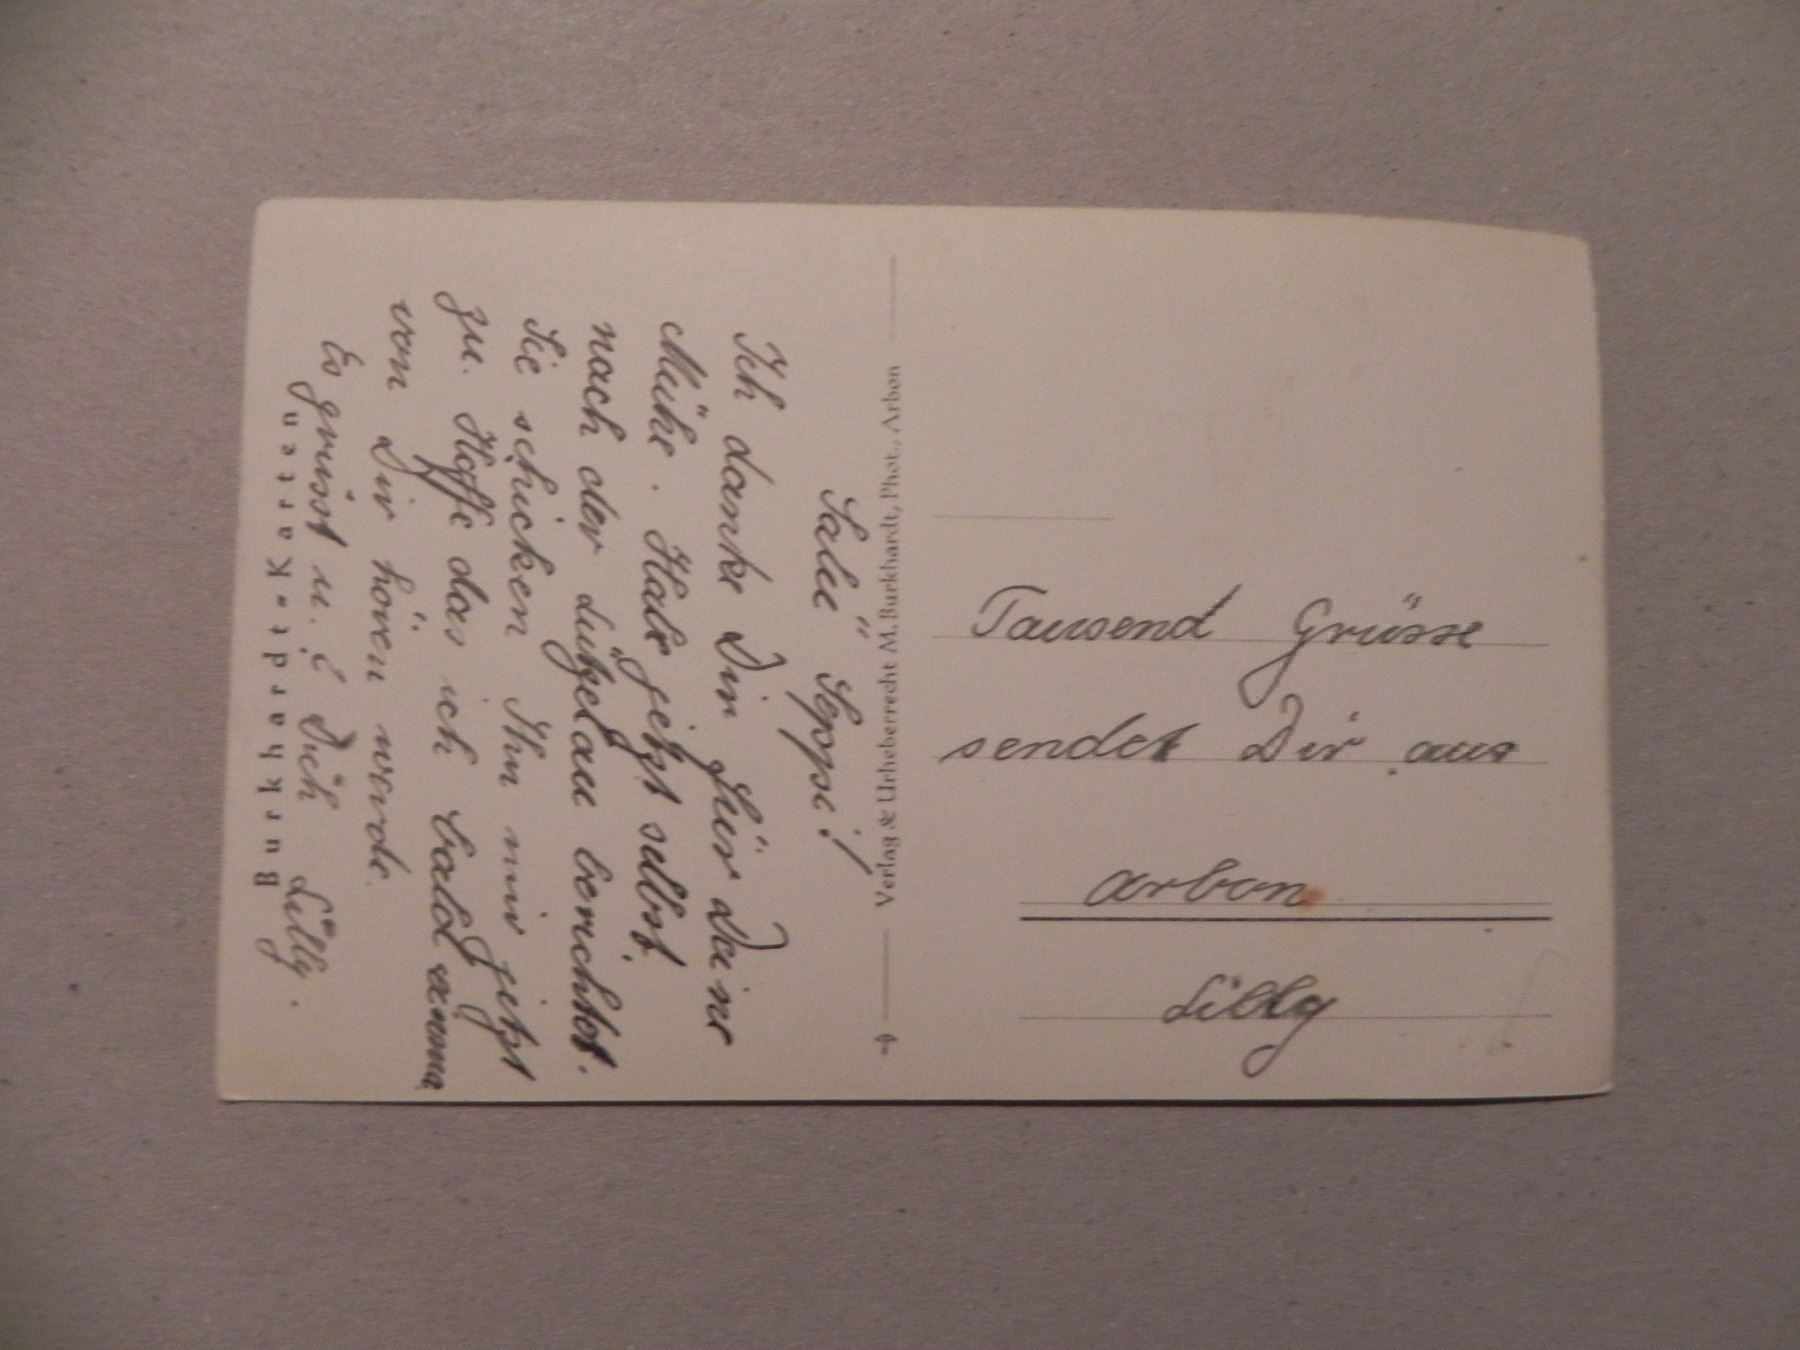 Salü Seppi!
Ich danke Dir für Deine
Mühe. Habe jetzt selbst
nach der berichtet.
Sie schicken Ihn mir jetzt
zu. Hoffe das ich bald
von Dir hören werde.
Es grüsst u. Dich Lilly.
Burkhardt-Karten
Verlag & Urheberrecht M. Burkhardt, Phot., Arbon
Tausend Grüsse
sendet Dir aus
Arbon
Lilly